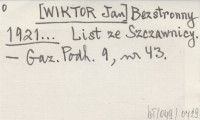 [WIKTOR Jan] Bezstronny
1921... List ze Szczawnicy.
— Gaz. Podh. 9, nr 43.